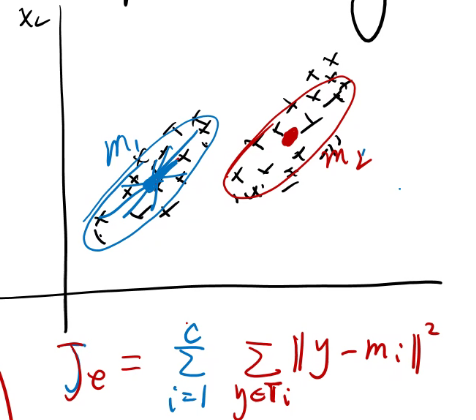 x₂
m₁
m₂
Jₑ = Σ^{c}_{i=1} Σ_{y∈Γᵢ} ‖y − mᵢ‖²